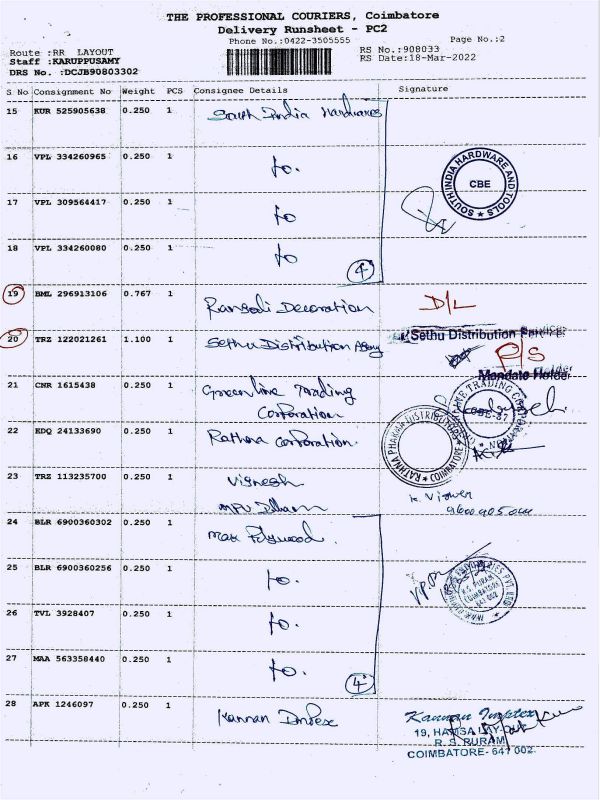 THE PROFESSIONAL COURIERS, Coimbatore
Delivery Runsheet - PC2
Phone No.:0422-3505555
Page No.:2
Route :RR LAYOUT
RS No.:908033
Staff :KARUPPUSAMY
RS Date:18-Mar-2022
DRS No. :DCJB90803302
S No Consignment No Weight PCS Consignee Details Signature
15 KUR 525905638 0.250 1 South India Hardwares
16 VPL 334260965 0.250 1 to.
SOUTH INDIA HARDWARE AND TOOLS
CBE
17 VPL 309564417 0.250 1 to
18 VPL 334260080 0.250 1 to
4
19 BML 296913106 0.767 1 Decoration D/L
20 TRZ 122021261 1.100 1 Sethu Distribution
Sethu Distribution
P/S
Mandate Holder
21 CNR 1615438 0.250 1 Greenline Trading
Corporation
22 KDQ 24133690 0.250 1 Rathna Corporation.
RATHNA PHARMA DISTRIBUTORS
COIMBATORE
23 TRZ 113235700 0.250 1 Vignesh
24 BLR 6900360302 0.250 1 Max Plywood.
25 BLR 6900360256 0.250 1 to.
R.S. PURAM
COIMBATORE
641 002
26 TVL 3928407 0.250 1 to.
27 MAA 563358440 0.250 1 to.
4
28 APK 1246097 0.250 1 Kannan Impex
Kannan Imptex
19, HAMSA LAY-OUT
R. S. PURAM
COIMBATORE- 641 002.